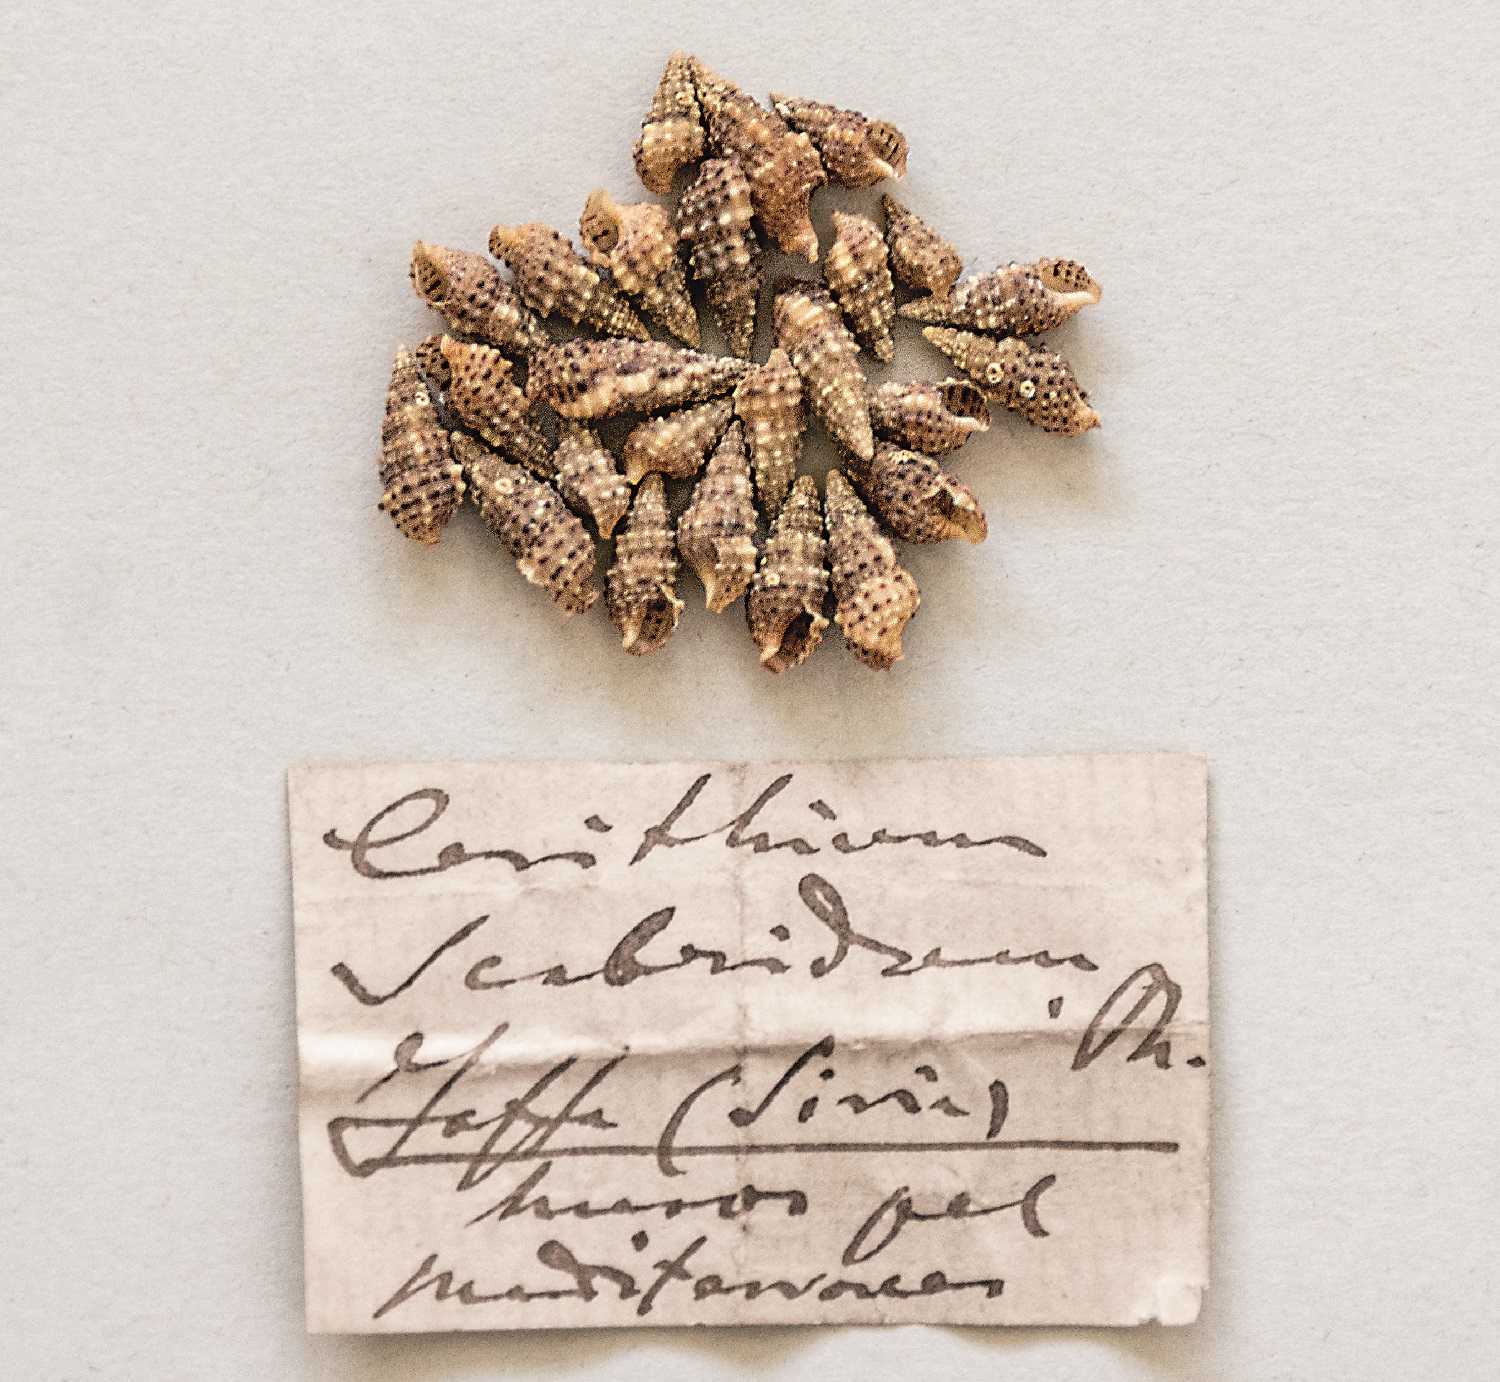 Cerithium
Scabridum
. Ph.
Jaffa (Siria)
nuovo pel
mediterraneo